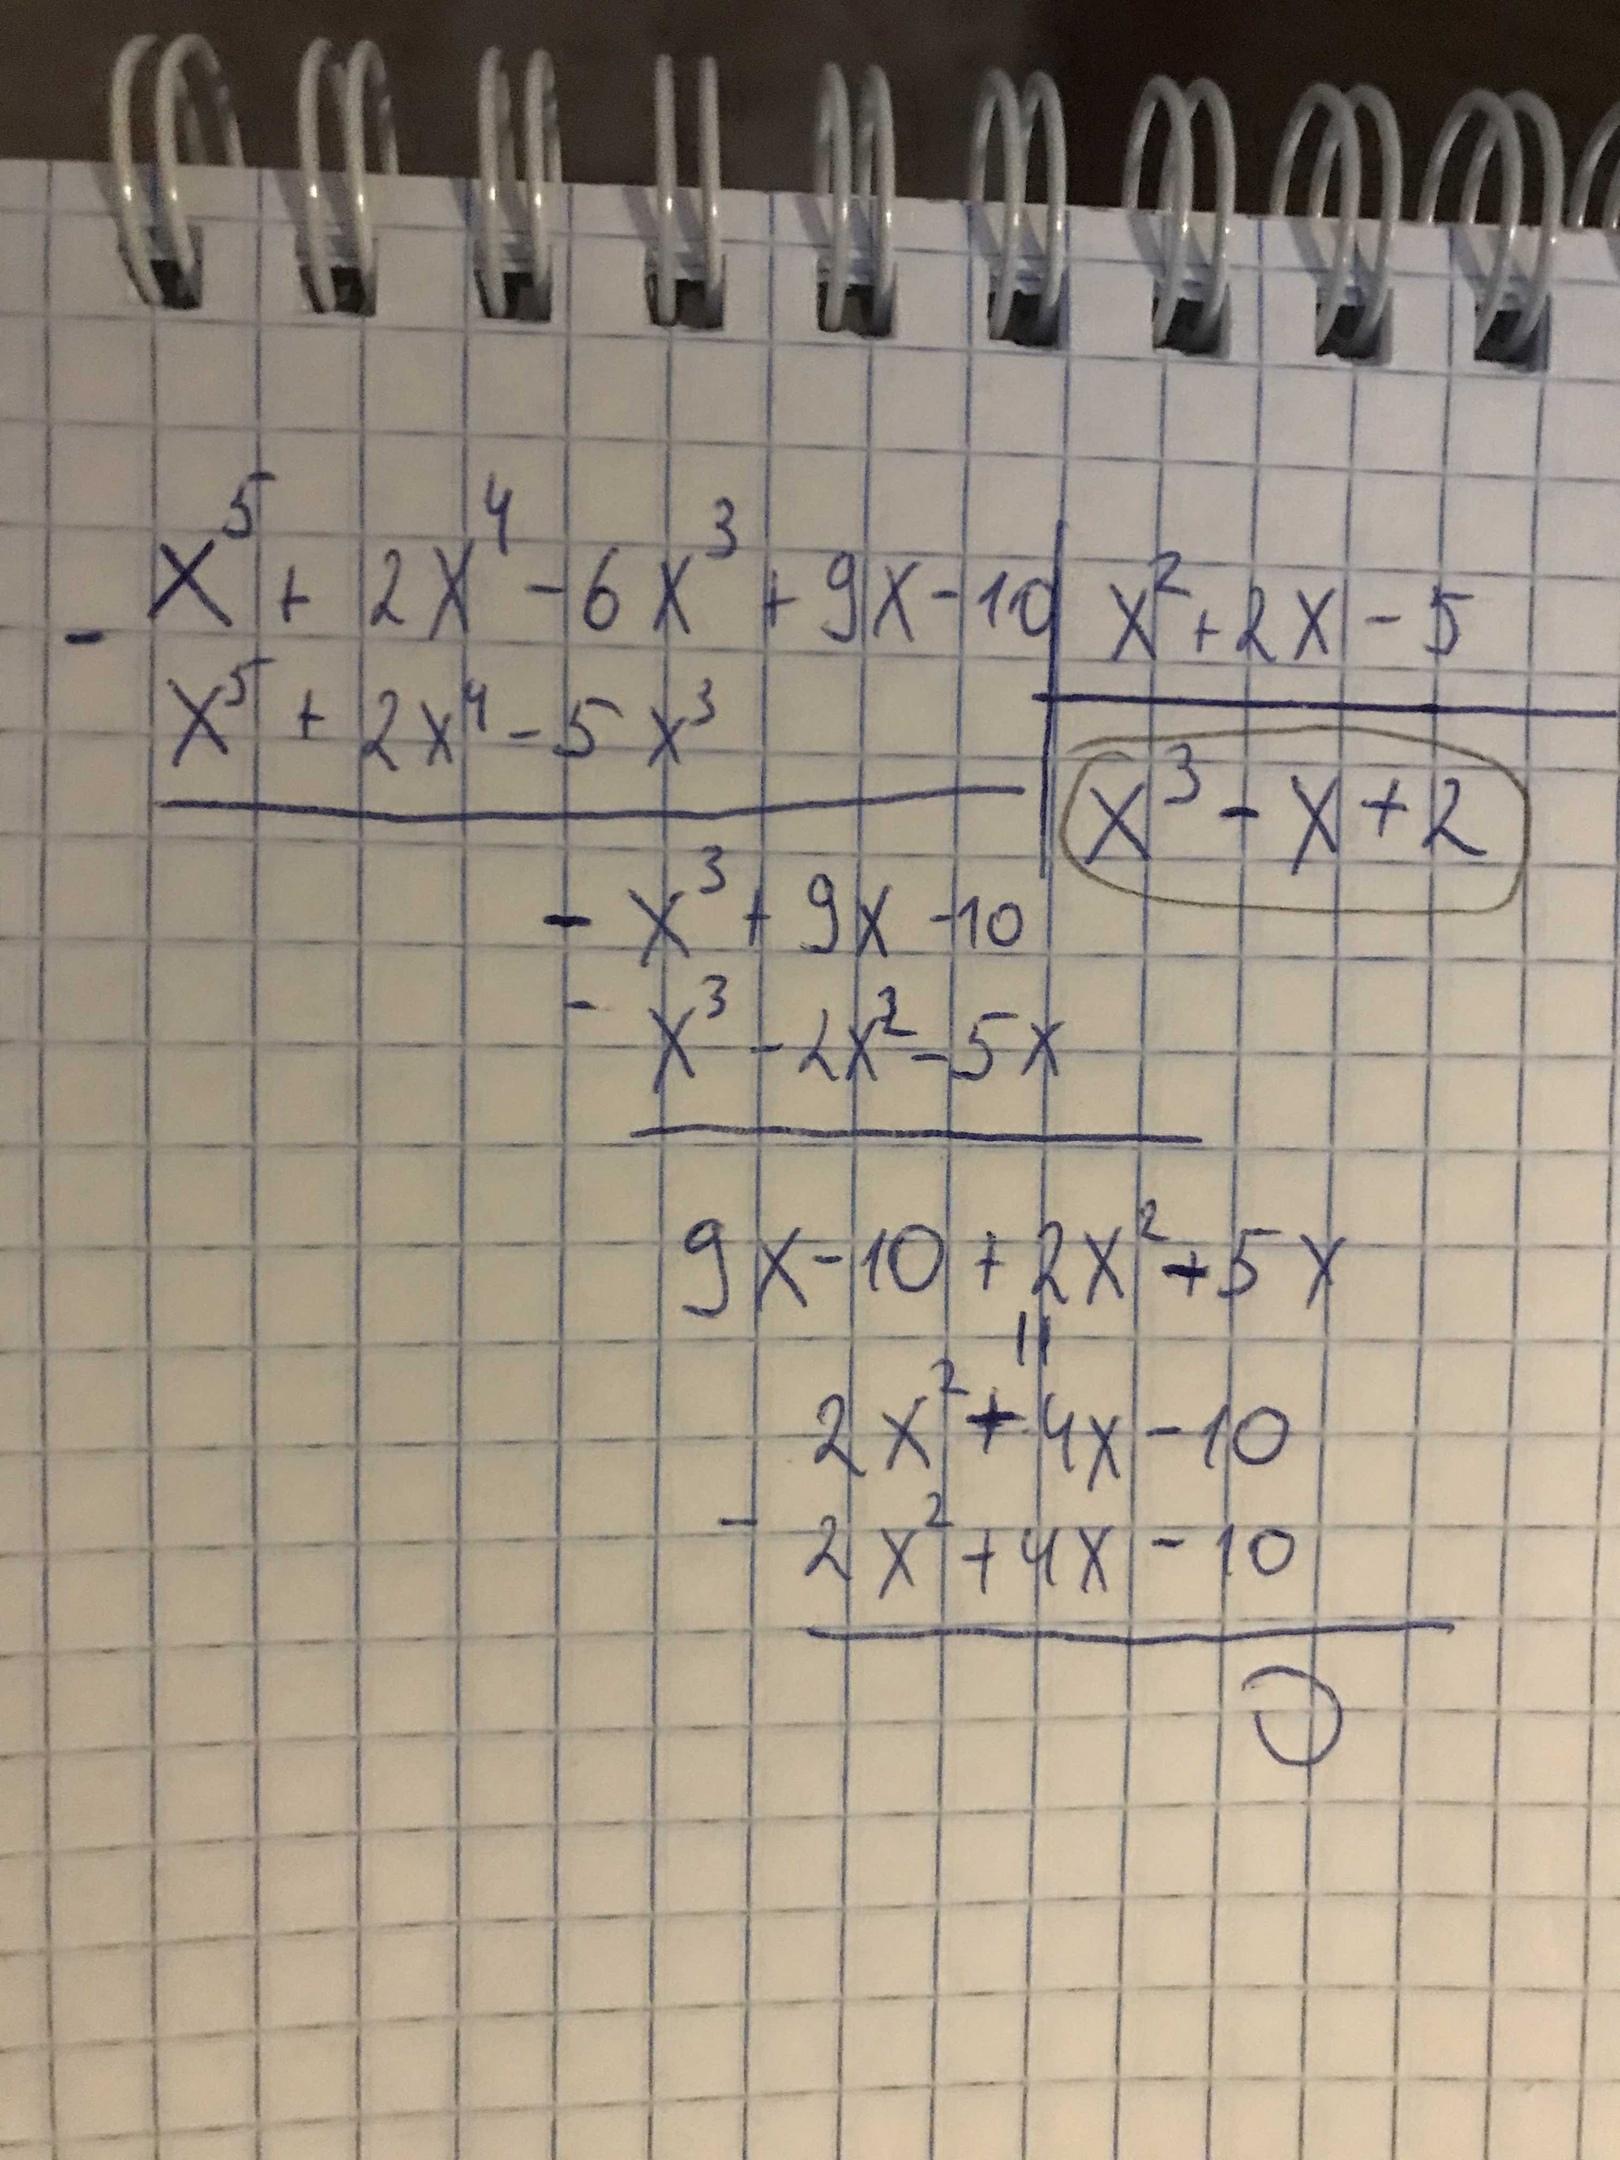 - x⁵ + 2x⁴ - 6x³ + 9x - 10 | x² + 2x - 5
x⁵ + 2x⁴ - 5x³
x³ - x + 2
- x³ + 9x - 10
- x³ - 2x² - 5x
9x - 10 + 2x² + 5x
11
2x² + 4x - 10
- 2x² + 4x - 10
0